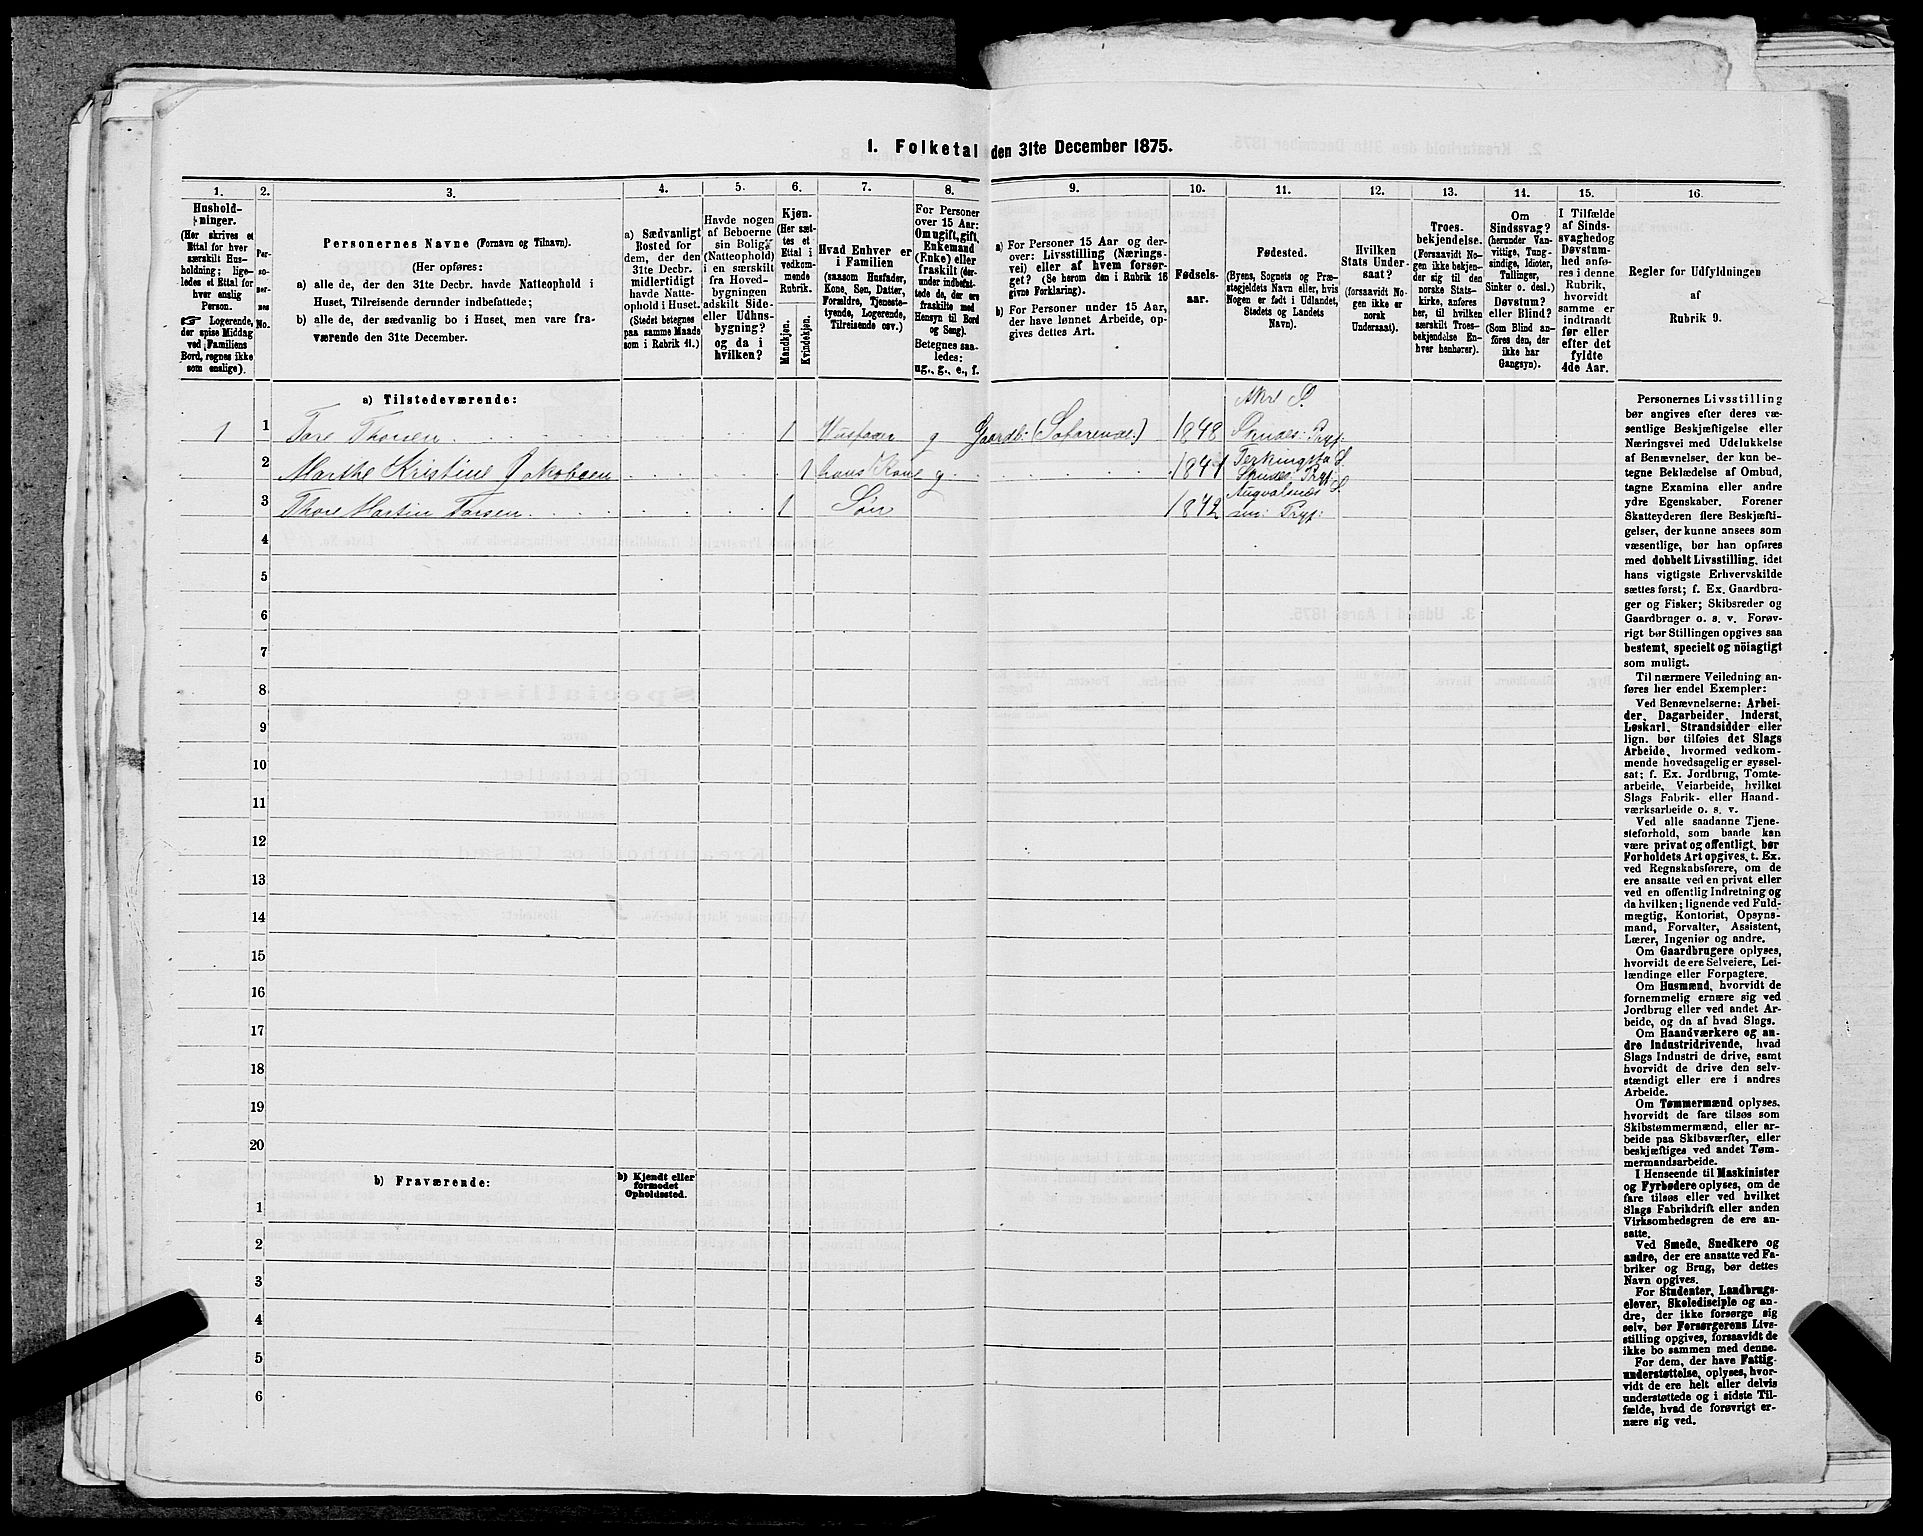 1. Folketal den 31te December 1875.
1. 2. 3. 4. 5. 6. 7. 8. 9. 10. 11. 12. 13. 14. 15. 16.
Hushold-
ninger.
(Her skrives et
Ettal for hver
særskilt Hus-
holdning; lige-
ledes et Ettal for
hver enslig
Person.
☞ Logerende,
der spise Middag
ved Familiens
Bord, regnes ikke
som enslige).
Per-
so-
ner-
nes
No.
Personernes Navne (Fornavn og Tilnavn).
(Her opføres:
a) alle de, der den 31te Decbr. havde Natteophold i
Huset, Tilreisende derunder indbefattede;
b) alle de, der sædvanlig bo i Huset, men vare fra-
værende den 31te December.
a) Sædvanligt
Bosted for
dem, der den
31te Decbr.
midlertidigt
havde Natte-
ophold i Huset.
(Stedet betegnes
paa samme Maade
som i Rubrik 11.)
Havde nogen
af Beboerne
sin Bolig
(Natteophold)
i en særskilt
fra Hoved-
bygningen
adskilt Side-
eller Udhus-
bygning?
og da i
hvilken?
Kjøn.
(Her sæt-
tes et
Ettal i
vedkom-
mende
Rubrik.
Mandkjøn.
Kvindekjøn.
Hvad Enhver er
i Familien
(saasom Husfader,
Kone, Søn, Datter,
Forældre, Tjeneste-
tyende, Logerende,
Tilreisende osv.)
For Personer
over 15 Aar:
Om ugift, gift,
Enkemand
(Enke) eller
fraskilt (der-
under indbefat-
tede de, der ere
fraskilte med
Hensyn til Bord
og Seng).
Betegnes saa-
ledes:
ug., g., e., f.
a) For Personer 15 Aar og der-
over: Livsstilling (Nærings-
vei) eller af hvem forsør-
get? (Se herom den i Rubrik 16
givne Forklaring).
b) For Personer under 15 Aar,
der have lønnet Arbeide, op-
gives dettes Art.
Fødsels-
aar.
Fødested.
(Byens, Sognets og Præ-
stegjeldets Navn eller, hvis
Nogen er født i Udlandet,
Stedets og Landets
Navn).
Hvilken
Stats Under-
saat?
(forsaavidt No-
gen ikke er
norsk
Undersaat).
Troes-
bekjendelse.
(Forsaavidt No-
gen ikke bekjen-
der sig til den
norske Stats-
kirke, anføres
her, til hvilken
særskilt Troes-
bekjendelse En-
hver henhører).
Om
Sindssvag?
(herunder Van-
vittige, Tung-
sindige, Idioter,
Tullinger,
Sinker o. desl.)
Døvstum?
eller Blind?
(Som Blind an-
føres den, der
ikke har
Gangsyn).
I Tilfælde
af Sinds-
svaghed og
Døvstum-
hed anfø-
res i denne
Rubrik,
hvorvidt
samme er
indtraadt
før eller
efter det
fyldte
4de Aar.
Regler for Udfyldningen
af
Rubrik 9.
a) Tilstedeværende:
Akre S.
1 1 Tore Thorsen 1 Husfader g Gaardb: 1848 Skudes: Prgj:
Ferkingstad S.
2 Marthe Kristine Jakobsen 1 hans Kone g Skudes: Prgj:
Augvalsnes S.
3 Thore Martin Torsen 1 Søn 1872 Prgj:
4
5
6
7
8
9
10
11
12
13
14
15
16
17
18
19
20
b) Fraværende:
b) Kjendt eller
formodet
Opholdssted.
1
2
3
4
5
6
Personernes Livsstilling
bør angives efter deres væ-
sentlige Beskjæftigelse eller
Næringsvei med Udelukkelse
af Benævnelser, der kun be-
tegne Beklædelse af Ombud,
tagne Examina eller andre
ydre Egenskaber. Forener
Skatteyderen flere Beskjæfti-
gelser, der kunne ansees som
væsentlige, bør han opføres
med dobbelt Livsstilling, idet
hans vigtigste Erhvervskilde
sættes først; f. Ex. Gaardbru-
ger og Fisker; Skibsreder og
Gaardbruger o. s. v. Forøv-
rigt bør Stillingen opgives saa
bestemt, specielt og nöiagtigt
som muligt.
Til nærmere Veiledning an-
føres her endel Exempler:
Ved Benævnelserne: Arbei-
der, Dagarbeider, Inderst,
Løskarl, Strandsidder eller
lign. bør tilføies det Slags
Arbeide, hvormed vedkom-
mende hovedsagelig er syssel-
sat; f. Ex. Jordbrug, Tomte-
arbeide, Veiarbeide, hvilket
Slags Fabrik- eller Haand-
værksarbeide o. s. v.
Ved alle saadanne Tjene-
steforhold, som baade kan
være privat og offentligt, bør
Forholdets Art opgives, t. Ex.
ved Regnskabsførere, om de
ere ansatte ved en privat eller
ved en offentlig Indretning og
da hvilken; lignende ved Fuld-
mægtig, Kontorist, Opsyns-
mand, Forvalter, Assistent,
Lærer, Ingeniør og andre.
Om Gaardbrugere oplyses,
hvorvidt de ere Selveiere, Lei-
lændinge eller Forpagtere.
Om Husmænd, hvorvidt de
fornemmelig ernære sig ved
Jordbrug eller ved andet Ar-
beide, og da af hvad Slags.
Om Haandværkere og an-
dre Industridrivende, hvad
Slags Industri de drive, samt
hvorvidt de drive den selv-
stændigt eller ere i andres
Arbeide.
Om Tømmermænd oplyses,
hvorvidt de fare tilsøs som
Skibstømmermænd, eller ar-
beide paa Skibsværfter, eller
beskjæftiges ved andet Tøm-
mermandsarbeide.
I Henseende til Maskinister
og Fyrbødere oplyses, om de
fare tilsøs eller ved hvilket
Slags Fabrikdrift eller anden
Virksomhedsgren de ere an-
satte.
Ved Smede, Snedkere og
andre, der ere ansatte ved Fa-
briker og Brug, bør dettes
Navn opgives.
For Studenter, Landbrugs-
elever, Skoledisciple og an-
dre, der ikke forsørge sig
selv, bør Forsørgerens Livs-
stilling opgives, forsaavidt de
ikke bo sammen med denne.
For dem, der have Fattig-
understøttelse, oplyses, hvor-
vidt de ere helt eller delvis
understøttede og i sidste Til-
fælde, hvad de forøvrigt er-
nære sig ved.